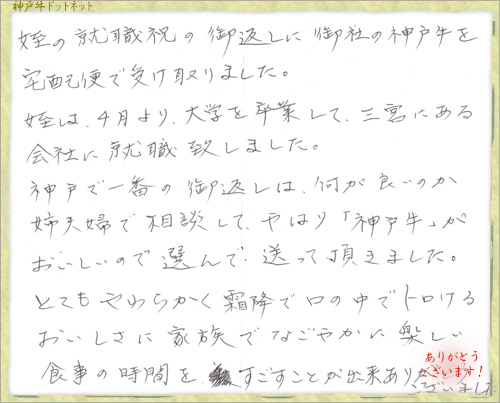 神戸牛ドットネット
姪の就職祝の御返しに御社の神戸牛を
宅配便で受け取りました。
姪は、4月より、大学を卒業して、三宮にある
会社に就職致しました。
神戸で一番の御返しは、何が良いのか
姉夫婦で相談して、やはり「神戸牛」が
おいしいので選んで、送って頂きました。
とてもやわらかく霜降で口の中でトロける
おいしさに家族でなごやかに楽しい
食事の時間をすごすことが出来あり
ございました
ありがとう
ございます!